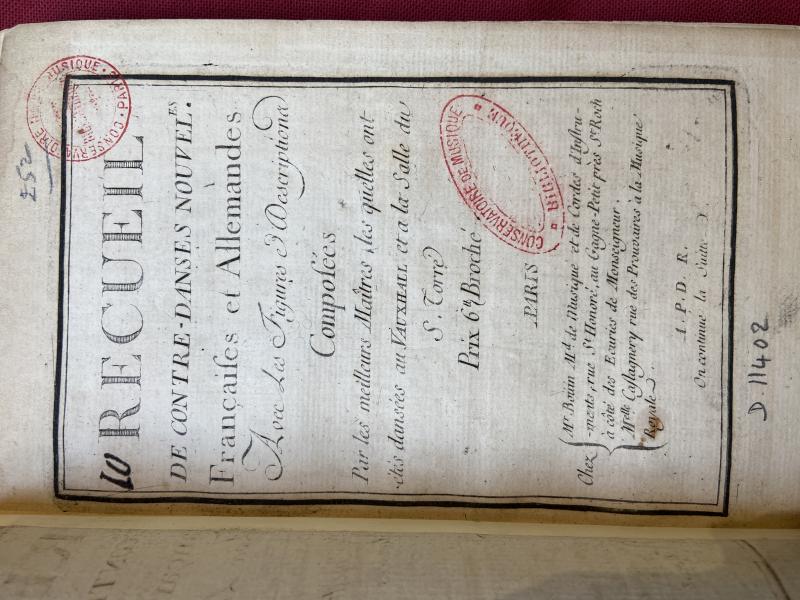 10 RECUEIL
DE CONTRE-DANSES NOUVEL.ES
Françaises et Allemandes
Avec Les Figures & Description
Composées
Par les meilleurs Maîtres, les quelles ont
étés dansées au VAUXHALL et a la Salle du
S. Torré
Prix 6tt Broché
PARIS
Chez
Mr. Bouin Md. de Musique et de Cordes d'Instru-
-ments, rue St. Honoré, au Gagne-Petit près St. Roch
à côté des Ecuries de Monseigneur.
Melle Castagnery rue des Prouvaires à la Musique
Royale
A. P. D. R.
On continue la Suitte
252
D. 11402
CONSERVATOIRE DE MUSIQUE
BIBLIOTHEQUE
CONSERVATOIRE MUSIQUE PARIS